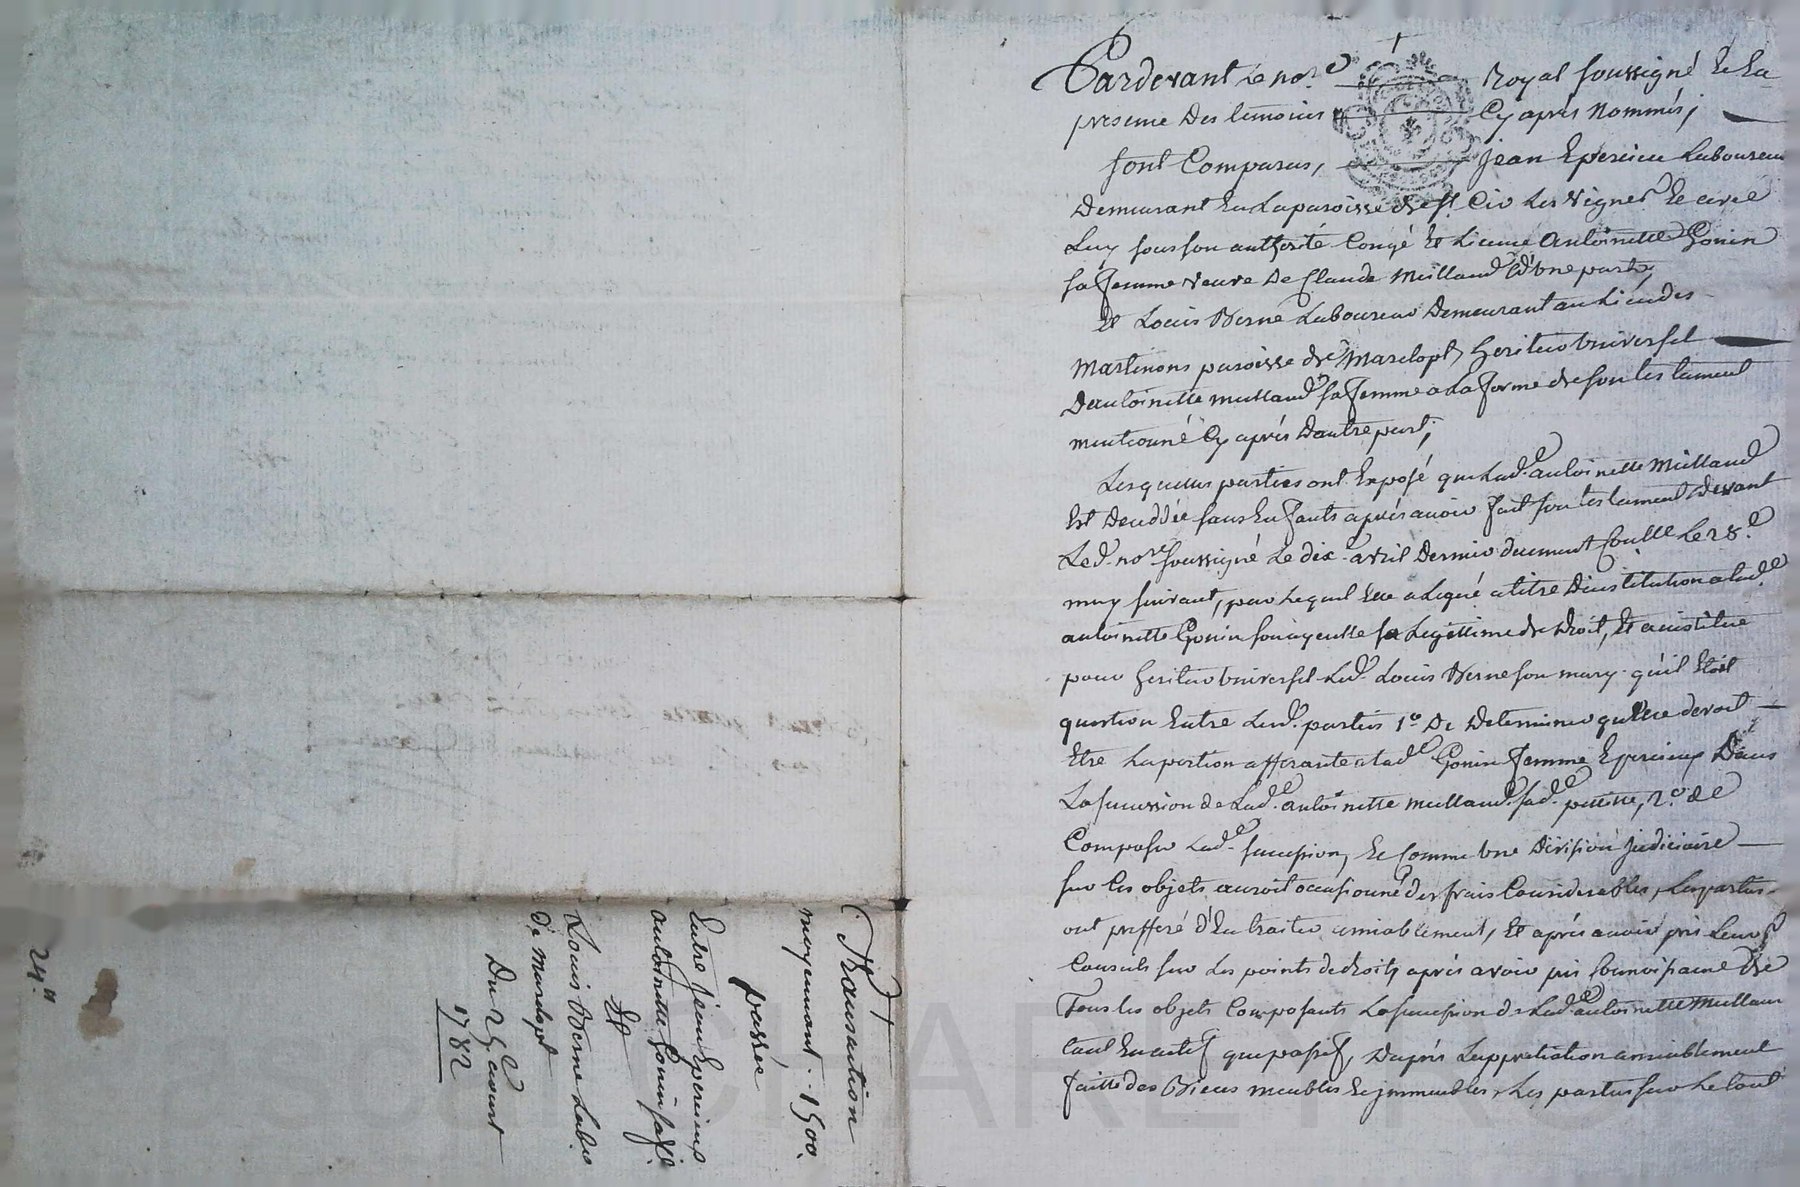 Pardevant Le no.re Royal soussigné et En
presence Des temoins Cy après Nommés;
sont Comparus, Jean Epercieu Laboureur
Demeurant En La paroisse de st. Cir Les Vignes Et avec
Luy sous son authorité Congé Et Licence Antoinette Gonin
sa femme veuve De Claude Meilland d'Une part,
Et Louis Verne Laboureur Demeurant au Lieu des
Martinons paroisse de Marclopt, heritier Universel
D'antoinette meilland sa femme a La forme de son testament
mentionné Cy après D'autre part;
Lesquelles parties ont Exposé que Lad.e antoinette Meilland
Est Decedée sans Enfants après avoir fait son testament Devant
Led. no.re soussigné Le dix avril Dernier duement Coullé Le 28.e
may suivant, par Lequel Elle a Legué a titre D'institution a lad.e
antoinette Gonin son ayeulle sa Legitime de Droit, Et a institué
pour heritier Universel Led. Louis Verne son mary qu'il Etoit
question Entre Lesd. parties 1.o De Determiner quelle devoit
Etre La portion afferante a lad.e Gonin femme Epercieux Dans
La succession de Lad.e antoinette meilland sad.e petitte, 2.o de
Composer Lad.e succession, Et Comme Une Division judiciaire
sur Ces objets auroit occasionné des frais Considerables, Les parties
ont prefferé d'En traiter amiablement, Et après avoir pris Leurs
Conseils sur Les points de droit, après avoir pris Connoissance de
Tous Les objets Composants La succession de Lad.e antoinette Meilland
tant En actif que passif, D'après L'appretiation amiablement
faitte des Biens meubles Et jmmeubles, Les parties sur Le tout
Transaction
moyennant 1500.
passée
Entre jean Epercieux
antoinette Gonin sa f.e
Et
Louis Verne Labr
De Marclopt
Du 25.e aoust
1782
24.